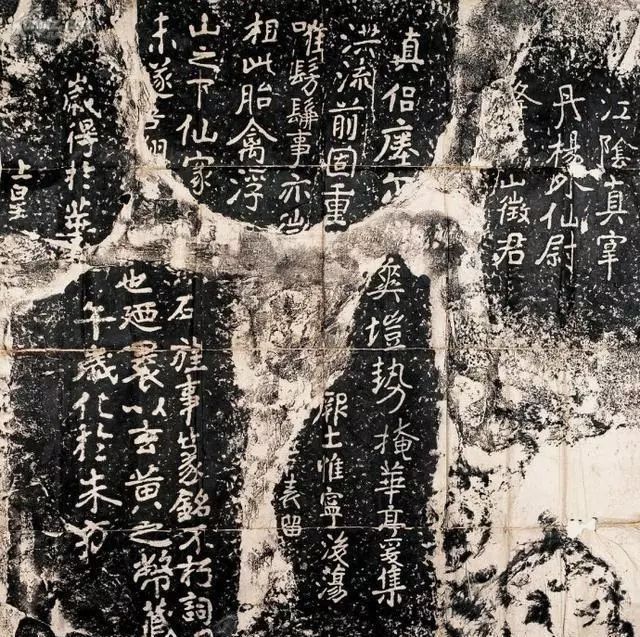 上皇
歲得於華
未遂吾翔
山之下仙家
相此胎禽浮
唯髣髴事亦
洪流前固重
真侶瘞尔
午歲化於朱方
也廼裹以玄黄之幣藏
石旌事篆銘不朽詞
表留
厥土惟寧後蕩
爽塏勢掩華亭爰集
山徵君
丹楊外仙尉
江陰真宰